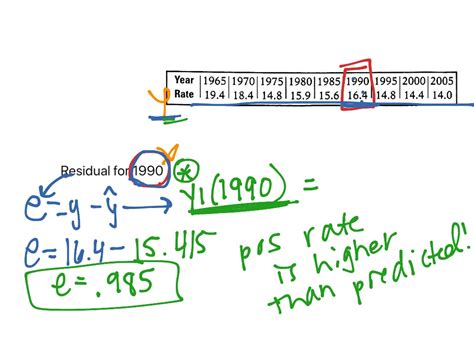 Year | 1965 | 1970 | 1975 | 1980 | 1985 | 1990 | 1995 | 2000 | 2005
Rate | 19.4 | 18.4 | 14.8 | 15.9 | 15.6 | 16.4 | 14.8 | 14.4 | 14.0
y
Residual for 1990
e = y - ŷ → * Y1(1990) =
e = 16.4 - 15.415
e = .985
pos rate
is higher
than predicted!